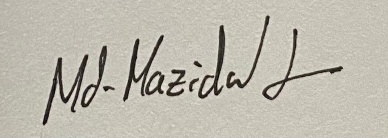 Md. Mazidul